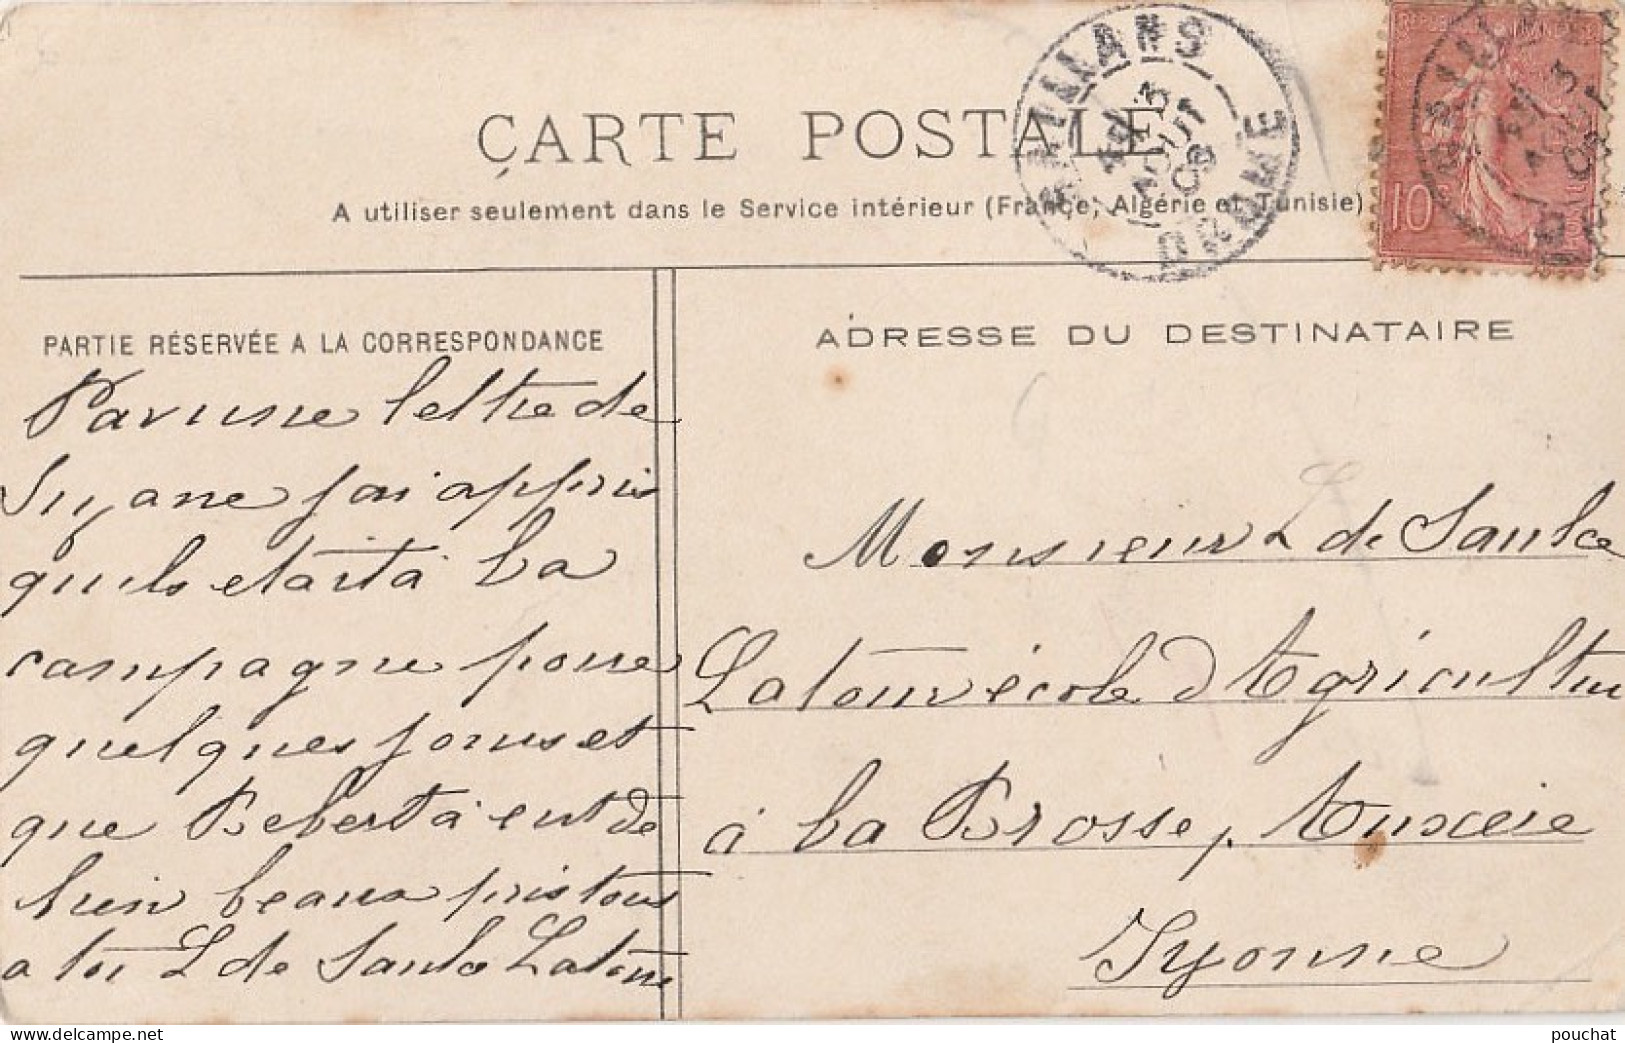 CARTE POSTALE
A utiliser seulement dans le Service intérieur (France, Algérie et Tunisie)
DROME
3
AOUT
10
PARTIE RÉSERVÉE A LA CORRESPONDANCE
Par une lettre de
Suzane jai appris
quils etaità la
campagne pour
quelques jours et
que Beberta eut de
bien beaux pris tous
a toi L de Saulce Latour
ADRESSE DU DESTINATAIRE
Monsieur L de Saulce
Latour école d'Agricultur
à la Brosse, Auxeie
Yyonne
pouchat